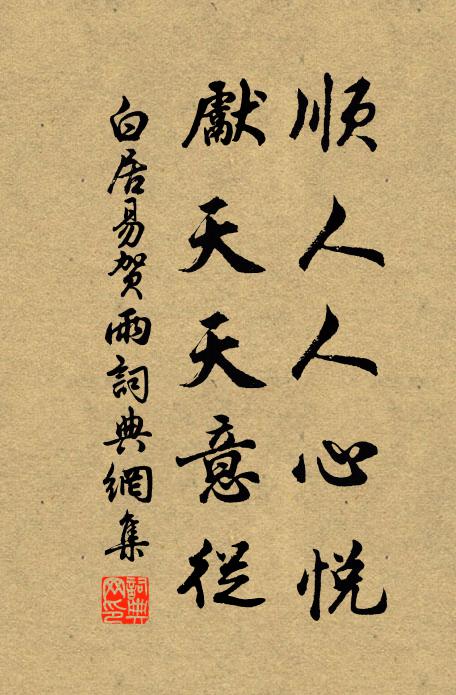 順人人心悅
獻天天意從
白居易賀雨詞典網集
詞典網印